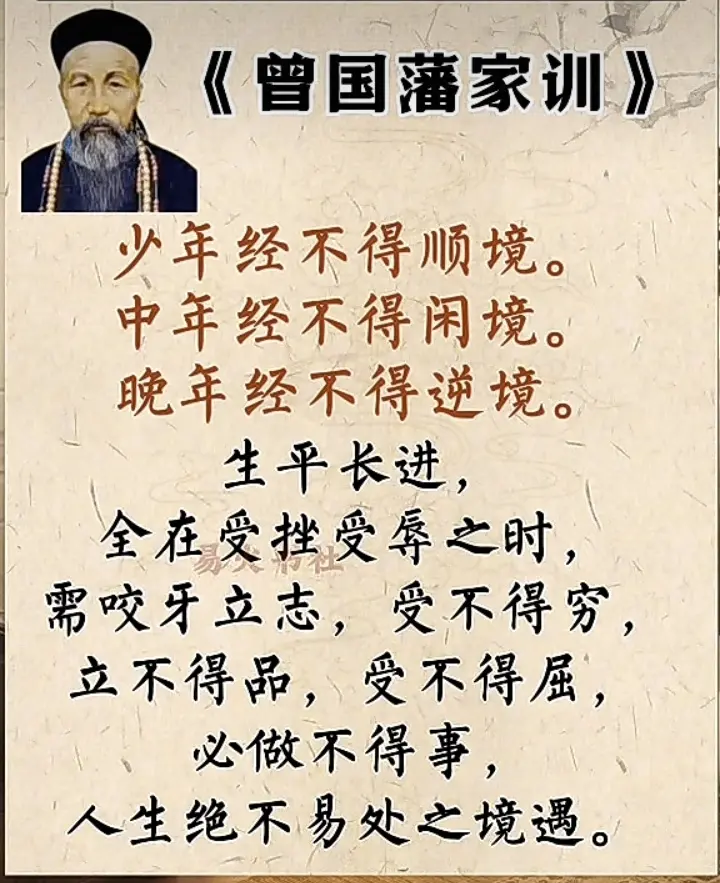 《曾国藩家训》
少年经不得顺境。
中年经不得闲境。
晚年经不得逆境。
生平长进，
全在受挫受辱之时，
需咬牙立志，受不得穷，
立不得品，受不得屈，
必做不得事，
人生绝不易处之境遇。